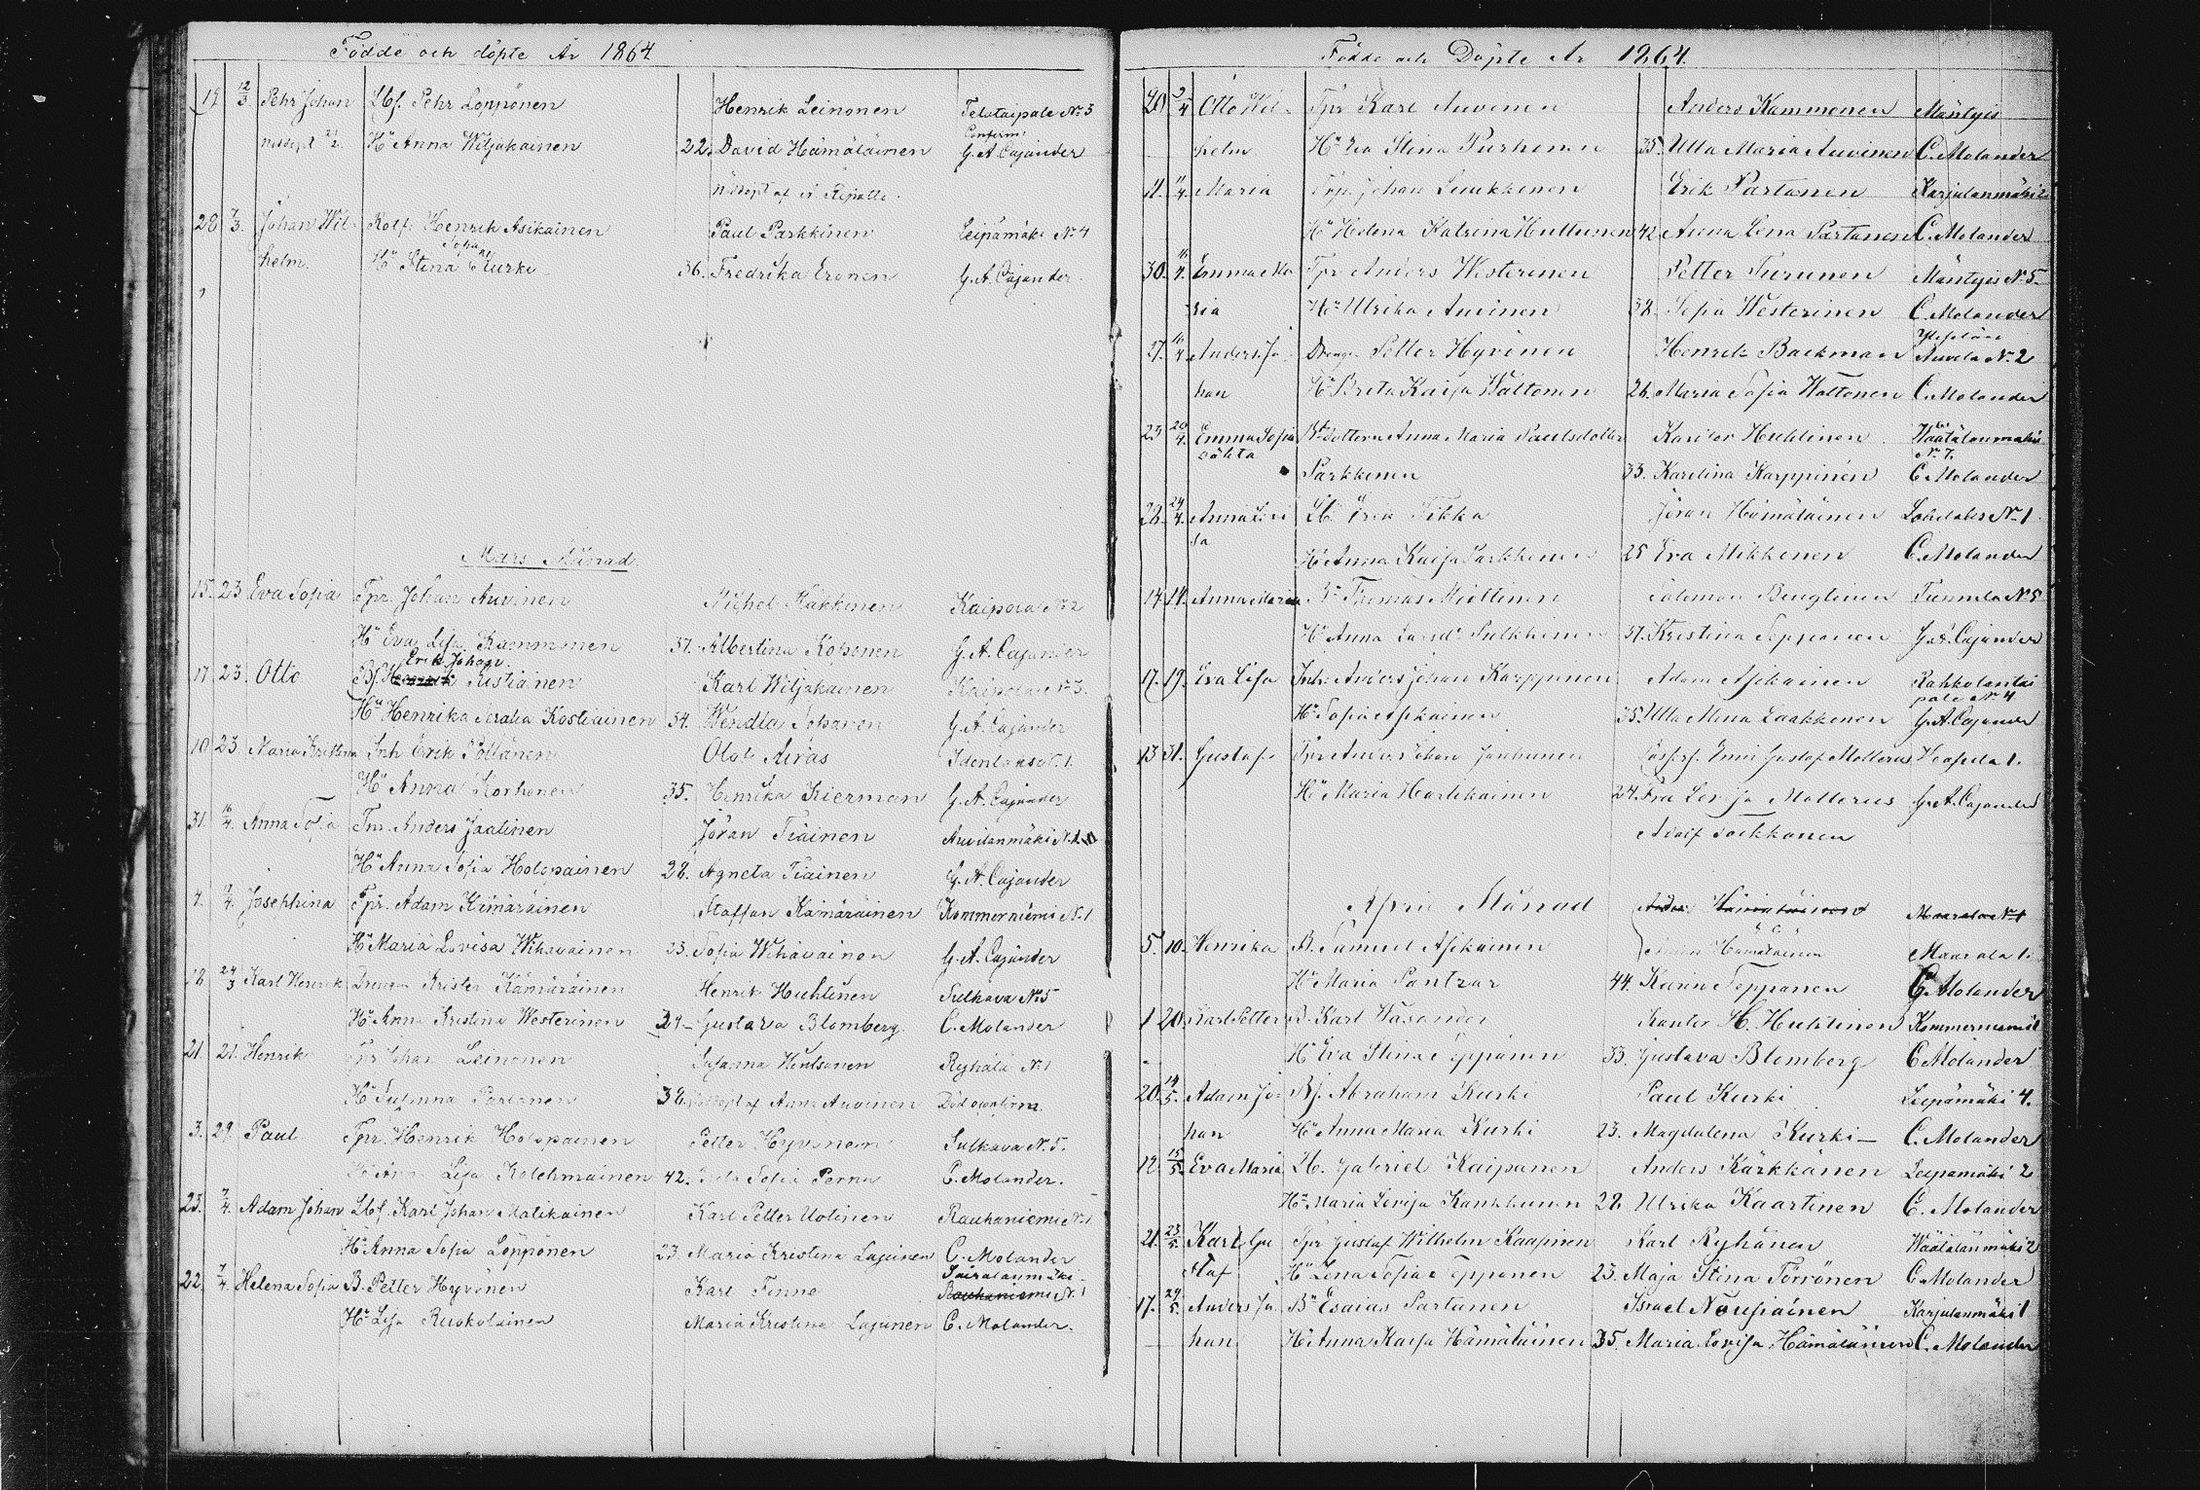 Födde och döpte År 1864
19 12/3 Pehr Johan Lbf. Pehr Löppönen Henrik Leinonen Telataipale No 3
nöddopt H:u Anna Wiljakainen 22. David Hämäläinen Conferm: G. A. Cajander
nöddopt af A. Repatti.
28 7/3. Johan Wil- Rolf: Henrik Asikainen Paul Parkkinen Leipämäki No 4
helm. H:u Stina Kurki 36. Fredrika Eronen G. A. Cajander
Mars Månad
15. 23 Eva Sofia Tpr. Johan Auvinen Michel Häkkinen Kaipola No 2
H:u Eva Lisa Kammonen 37. Albertina Koponen G. A. Cajander
Erik Johan
17. 23. Otto Bf. Ristiänen Karl Wiljakainen No 3.
H:u Henrika Kostiainen 34. Wendla G. A. Cajander
10 23. Maria Kristina Inh. Erik Pöllänen Olof Auvas Idenlaks No 1.
H:u Anna Korhonen 35. Henrika Kierman G. A. Cajander
31. 16/4. Anna Sofia Anders Jaatinen Jöran Tiainen Auvilanmäki
H:u Anna Sofia Holopainen 28. Agneta Tiainen G. A. Cajander
7. Josephina Tpr. Adam Kämäräinen Staffan Kämäräinen Kommerniemi No 1
H:u Maria Lovisa Wihavainen 23. Sofia Wihavainen G. A. Cajander
18 24/3 Karl Henrik Krister Kämäräinen Henrik Huhtinen Sulkava No 5
H:u Anna Kristina Westerinen 24 Gustava Blomberg. C. Molander
21. 21. Henrik Tpr Johan Leinonen Susanna Ryhälä No 1
H:u Susanna Partanen 38. nöddopt af Anna Auvinen Död oconfirm.
3. 29. Paul Tpr. Henrik Holopainen Petter Hyvönen Sulkava No 5.
H:u Anna Lisa Kolehmainen 42. Sofia Perna C. Molander.
23. 7/4. Adam Johan Lbf. Karl Johan Malikainen Karl Petter Uotinen Rauhaniemi No 1
H:u Anna Sofia Löppönen 23. Maria Kristina Lajunen C. Molander
22. 7/4. Helena Sofia B. Petter Hyvönen Karl Finne Rauhaniemi No 1
H:u Lisa Ruokolainen Maria Kristina Lajunen C. Molander.
Födde och Döpte År 1864.
20 2/4 Otto Wil- Tpr Karl Auvinen Anders Kammonen Mäntyis
helm H:u Eva Stina Purhonen 35. Ulla Maria Auvinen C. Molander
11. 11/4. Maria Johan Luukkonen Erik Partanen Karjulanmäki 2
H:u Helena Katrina Huttunen 42. Anna Lena Partanen C. Molander
30. 11/4. Emma Ma Tpr Anders Westerinen Petter Turunen Mäntyis No 5.
ria H:u Ulrika Auvinen 38. Sofia Westerinen C. Molander
27. 11/4 Anders Jo Dreng. Petter Hyvönen Henrik Backman Auvila No 2
han H:u Breta Kaisa Wältonen 26. Maria Sofia Wältonen C. Molander
23 20/4. Emma Sofia B:dottern Anna Maria Paulsdotter Kantor Huhtinen Waatalanmäki No 7.
oäkta
Parkkinen 33. Karolina Karppinen C. Molander
26. 24/4. Anna Lovi Tikka Jöran Hämäläinen Lohilaks No 1
sa
H:u Anna Kaisa Parkkinen 25 Eva Mikkonen C. Molander
14. 14. Anna Maria B:n Thomas Miettinen Salomon Tunnila No 5
H:u Anna Pulkkinen 37. Kristina Teppanen G. A. Cajander
17. 19. Eva Lisa Inh: Anders Johan Karppanen Adam Asikainen Rahkolantai
pale No 4
H:u Sofia Asikainen 35. Ulla Mina Laakkonen G. A. Cajander
13 31. Gustaf Tpr Anders Johan Janhunen Gustaf Mollerus 1.
H:u Maria Hartikainen 24. Mollerus G. A. Cajander
Adolf Toikkanen
April Månad Hämäläinen Maarala No 1
5. 10. Henrika B. Samuel Asikainen Hämäläinen Maarala 1.
H:u Maria Pantzar 44. Karin Teppanen C. Molander
1 20. Karl Petter B. Karl Wäsander Kantor H. Huhtinen Kommerniemi 1
H:u Eva Stina Teppanen 33. Gustava Blomberg C. Molander
20. 14/5. Adam Jo- Bf. Abraham Kurki Paul Kurki Leipämäki 4.
han H:u Anna Maria Kurki 23. Magdalena Kurki C. Molander
12. 15/5. Eva Maria Lb. Gabriel Kaipanen Anders Kärkkänen Leipämäki 2
H:u Maria Lovisa Kankkunen 28. Ulrika Kaartinen C. Molander
21. 23/5. Karl Gu Tpr Gustaf Wilhelm Kaapinen Karl Ryhänen Waatalanmäki 2
staf H:u Lena Sofia Teppanen 23. Maja Stina Törrönen C. Molander
17. 29/5. Anders Jo B:n Esaias Partanen Israel Nousiainen Karjulanmäki 1
han H:u Anna Kaisa Hämäläinen 35. Maria Lovisa Hämäläinen C. Molander